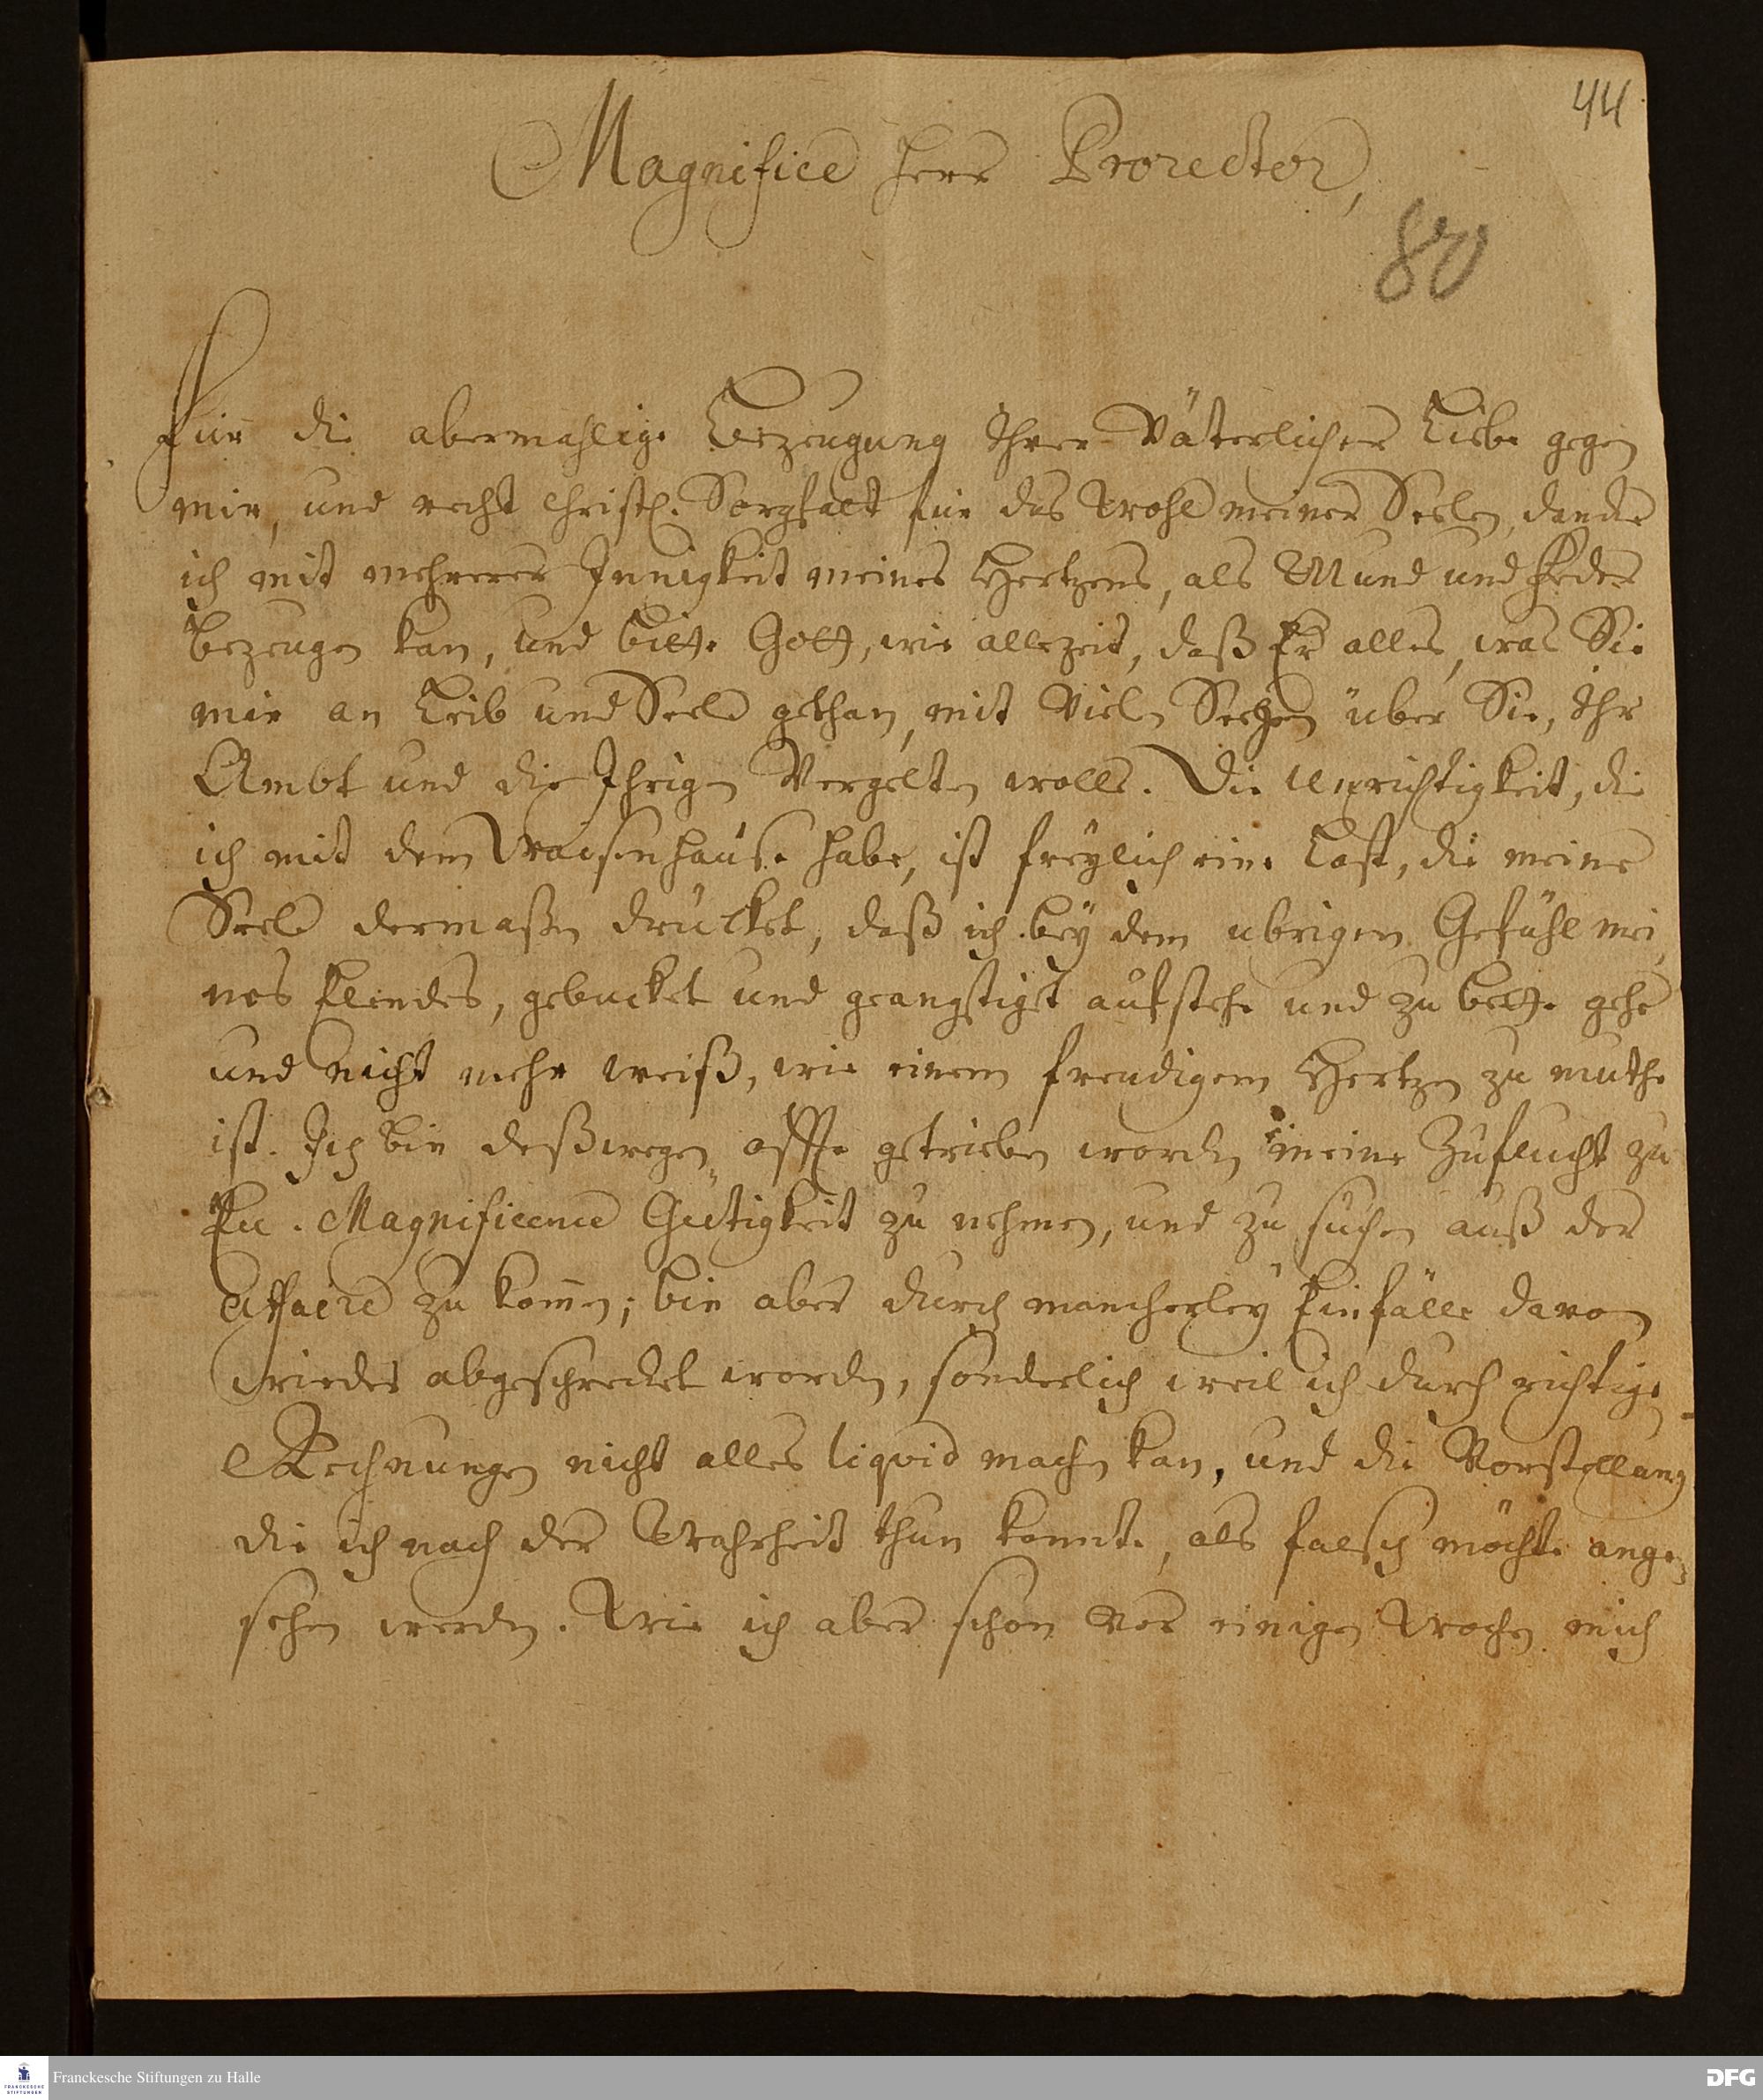 44
Magnifice Herr Prorector,
80
Für die abermahlige Bezeugung Ihrer Väterlichen Liebe gegen
mir, und recht Christl. Sorgfalt für das Wohl meiner Seelen, dancke
ich mit mehrerer Innigkeit meines Hertzens, als Mund und Feder
bezeugen kan, und bitte Gott, wie allezeit, daß Er alles, was Sie
mir an Leib und Seele gethan, mit vielen Seegen über Sie, Ihr
Ambt und die Ihrigen Vergelten wolle. Die Unrichtigkeit, die
ich mit dem Waisenhause habe, ist freÿlich eine Last, die meine
Seele dermaßen drücket, daß ich beÿ dem ubrigen Gefühl mei
nes Elendes, gebucket und geangstiget aufstehe und zu bette gehe
und nicht mehr weiß, wie einem freudigem Hertzen zu muthe
ist. Ich bin deßwegen offte getrieben worden meine Zuflucht zu
Eu. Magnificence Gütigkeit zu nehmen, und zu suchen auß der
Affaire zu kom̄en; bin aber durch mancherleÿ Einfälle davon
wieder abgeschrecket worden, sonderlich weil ich durch richtige
Rechnungen nicht alles liqvid machen kan, und die Vorstellung
die ich nach der Wahrheit thun konnte, als falsch möchte ange-
sehen werden. Wie ich aber schon vor einigen Wochen mich
Franckesche Stiftungen zu Halle
FRANCKESCHE
STIFTUNGEN
DFG